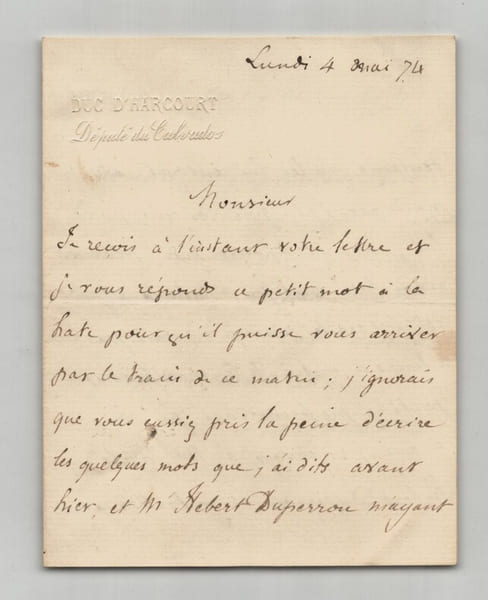 Lundi 4 mai 74
DUC D'HARCOURT
Député du Calvados
Monsieur
Je reçois à l'instant votre lettre et
je vous réponds ce petit mot à la
hate pour qu'il puisse vous arriver
par le train de ce matin ; j'ignorais
que vous eussiez pris la peine d'écrire
les quelques mots que j'ai dits avant
hier, et Mr Hebert Duperron m'ayant